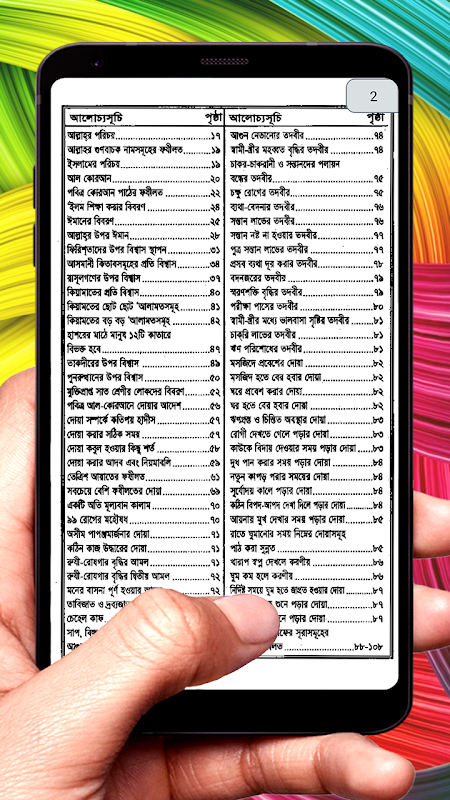 2
আলোচ্যসূচি পৃষ্ঠা
আল্লাহ্‌র পরিচয়.....১৭
আল্লাহর গুণবাচক নামসমূহের ফযীলত.....১৯
ইসলামের পরিচয়.....১৯
আল কোরআন.....২০
পবিত্র কোরআন পাঠের ফযীলত.....২২
'ইলম শিক্ষা করার বিবরণ.....২৪
ঈমানের বিবরণ.....২৫
আল্লাহ্‌র উপর ঈমান.....২৮
ফিরিশ্‌তাদের উপর বিশ্বাস স্থাপন.....৩১
আসমানী কিতাবসমূহের প্রতি বিশ্বাস.....৩৪
রাসূলগণের উপর বিশ্বাস.....৩৭
কিয়ামাতের প্রতি বিশ্বাস.....৪০
কিয়ামতের ছোট ছোট 'আলামতসমূহ.....৪১
কিয়মতের বড় বড় 'আলামতসমূহ.....৪২
হাশরের মাঠে মানুষ ১২টি কাতারে
বিভক্ত হবে.....৪৭
তাকদীরের উপর বিশ্বাস.....৪৯
পুনরুত্থানের উপর বিশ্বাস.....৫০
মুক্তিপ্রাপ্ত সাত শ্রেণীর লোকদের বিবরণ.....৫২
পবিত্র আল-কোরআনে দোয়ার আদেশ.....৫৬
দোয়া সম্পর্কে কতিপয় হাদীস.....৫৭
দোয়া করার সঠিক সময়.....৫৭
দোয়া কবুল হওয়ার কিছু শর্ত.....৫৮
দোয়া করার আদব এবং নিয়মাবলি.....৫৯
তেত্রিশ আয়াতের ফযীলত.....৬১
সবচেয়ে বেশি ফযীলতের দোয়া.....৬৯
একটি অতি মূল্যবান কালাম.....৭০
৯৯ রোগের মহৌষধ.....৭০
অসীম পাপমার্জনার দোয়া.....৭১
কঠিন কাজ উদ্ধারের দোয়া.....৭১
রুযী-রোযগার বৃদ্ধির আমল.....৭১
রুযী-রোযগার বৃদ্ধির দ্বিতীয় আমল.....৭২
মনের বাসনা পূর্ণ হওয়ার.....৭২
তাবিজাত ও
চেহেল কাফ
সাপ,
আলোচ্যসূচি পৃষ্ঠা
আগুন নেভানোর তদবীর.....৭৪
স্বামী-স্ত্রীর মহব্বত বৃদ্ধির তদবীর.....৭৪
চাকর-চাকরানী ও সন্তানদের পলায়ন
বন্ধের তদবীর.....৭৫
চক্ষু রোগের তদবীর.....৭৫
ব্যথা-বেদনার তদবীর.....৭৬
সন্তান লাভের তদবীর.....৭৬
সন্তান নষ্ট না হওয়ার তদবীর.....৭৭
পুত্র সন্তান লাভের তদবীর.....৭৭
প্রসব ব্যথা দূর করার তদবীর.....৭৮
বদনজরের তদবীর.....৭৯
স্মরণশক্তি বৃদ্ধির তদবীর.....৭৯
পরীক্ষা পাসের তদবীর.....৮০
স্বামী-স্ত্রীর মধ্যে ভালবাসা সৃষ্টির তদবীর.....৮১
চাকুরি লাভের তদবীর.....৮১
ঋণ পরিশোধের তদবীর.....৮১
মসজিদে প্রবেশের দোয়া.....৮২
মসজিদ হতে বের হবার দোয়া.....৮২
ঘরে প্রবেশ করার দোয়া.....৮২
ঘর হতে বের হবার দোয়া.....৮২
ঋণগ্রস্ত ও চিন্তিত অবস্থার দোয়া.....৮৩
রোগী দেখতে গেলে পড়ার দোয়া.....৮৩
কাউকে বিদায় দেওয়ার সময় পড়ার দোয়া.....৮৩
দুধ পান করার সময় পড়ার দোয়া.....৮৪
নতুন কাপড় পরার সময়ের দোয়া.....৮৪
সূর্যোদয় কালে পড়ার দোয়া.....৮৪
কঠিন বিপদ-আপদ দেখা দিলে পড়ার দোয়া.....৮৪
আয়নায় মুখ দেখার সময় পড়ার দোয়া.....৮৫
রাতে ঘুমানোর সময় নিম্নের দোয়াসমূহ
পাঠ করা সুন্নত.....৮৫
খারাপ স্বপ্ন দেখলে করণীয়.....৮৬
ঘুম কম হলে করণীয়.....৮৬
নির্দিষ্ট সময়ে ঘুম হতে জাগ্রত হওয়ার দোয়া.....৮৭
শুনে পড়ার দোয়া.....৮৭
নে পড়ার দোয়া.....৮৭
ফের সূরাসমূহের
লত.....৮৮-১০৮